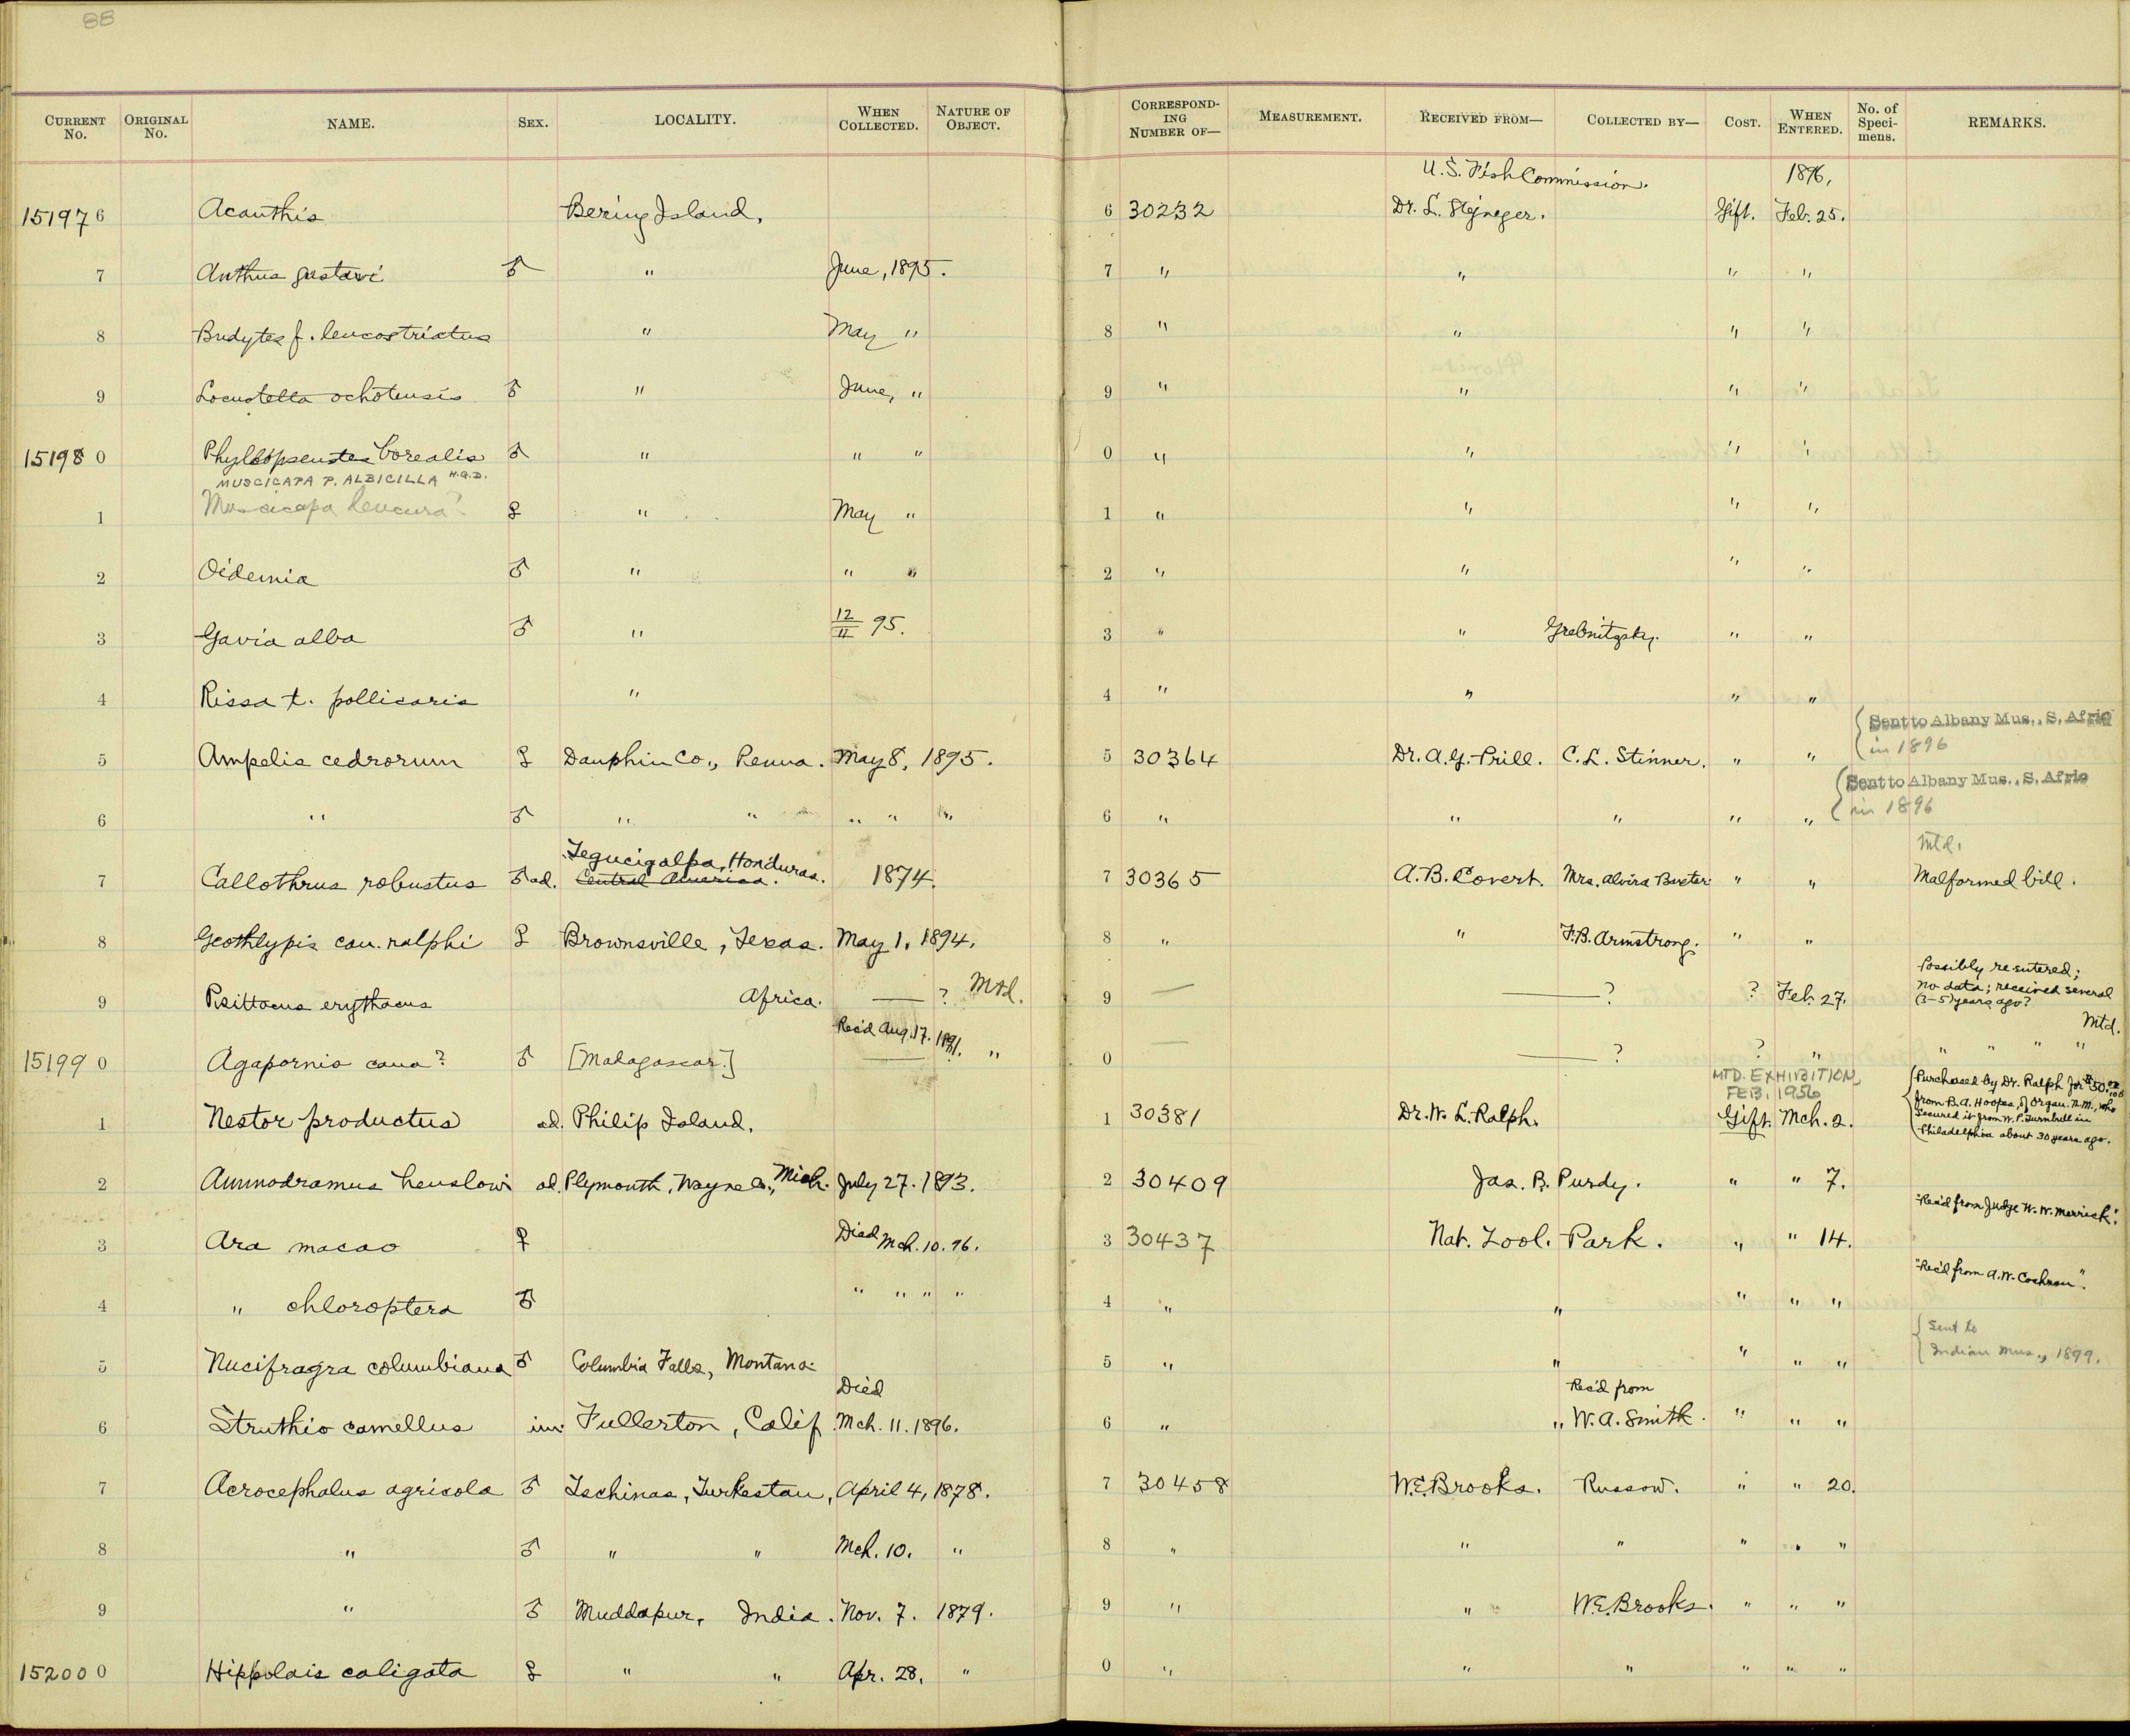 88
CURRENT No. ORIGINAL No. NAME. SEX. LOCALITY. WHEN COLLECTED. NATURE OF OBJECT. CORRESPONDING NUMBER OF— MEASUREMENT. RECEIVED FROM— COLLECTED BY— COST. WHEN ENTERED. No. of Specimens. REMARKS.
U.S. Fish Commission. 1896,
151976 Acanthis Bering Island, 6 30232 Dr. L. Stejneger. Gift. Feb. 25.
7 Anthus gustavi ♂ " June, 1895. 7 " " " "
8 Budytes f. leucostriatus " May " 8 " " " "
9 Locustella ochotensis ♂ " June, " 9 " " " "
151980 Phyllopseustes borealis ♂ " " " 0 " " " "
MUSCICAPA P. ALBICILLA H.G.D.
1 Muscicapa leucura? ♀ " May " 1 " " " "
2 Oidemia ♂ " " " 2 " " " "
3 Gavia alba ♂ " 12/11 95. 3 " " Grebnitzsky. " "
4 Rissa t. pollicaris " 4 " " " "
Sent to Albany Mus., S. Afric
in 1896
5 Ampelis cedrorum ♀ Dauphin Co., Penna. May 8, 1895. 5 30364 Dr. A. G. Prill. C. L. Stinner. " "
Sent to Albany Mus., S. Afric
in 1896
6 " ♂ " " " " " 6 " " " " "
Tegucigalpa, Honduras. Mtd.
7 Callothrus robustus ♂ ad. Central America. 1874. 7 30365 A. B. Covert. Mrs. Alvira Baxter " " Malformed bill.
8 Geothlypis cau. ralphi ♀ Brownsville, Texas. May 1, 1894. 8 " " F. B. Armstrong. " "
Possibly re-entered;
9 Psittacus erythacus Africa. — ? Mtd. 9 — — ? ? Feb. 27. no data; received several
(3-5) years ago?
Mtd.
Rec'd Aug. 17. 1891.
151990 Agapornis cana? ♂ [Madagascar.] — " 0 — — ? ? " " " " "
MTD. EXHIBITION
FEB, 1956
Purchased by Dr. Ralph for $50.00/100
from B. A. Hoopes, of Organ. N.M., who
1 Nestor productus ad. Philip Island. 1 30381 Dr. W. L. Ralph. Gift. Mch. 2. secured it from W. P. Turnbull in
Philadelphia about 30 years ago.
2 Ammodramus henslowi ad. Plymouth, Wayne Co., Mich. July 27. 1893. 2 30409 Jas. B. Purdy. " " 7.
"Rec'd from Judge W. W. Merrick".
3 Ara macao ♀ Died Mch. 10. 96. 3 30437 Nat. Zool. Park. " " 14.
"Rec'd from A. W. Cochran".
4 " chloroptera ♂ " " " " 4 " " " " "
Sent to
5 Nucifragra columbiana ♂ Columbia Falls, Montana. 5 " " " " " Indian Mus., 1899.
Died Rec'd from
6 Struthio camellus im. Fullerton, Calif. Mch. 11. 1896. 6 " " W. A. Smith. " " "
7 Acrocephalus agricola ♂ Tschinas, Turkestan, April 4, 1878. 7 30458 W.E. Brooks. Russow. " " 20.
8 " ♂ " " Mch. 10. " 8 " " " " " "
9 " ♂ Muddapur, India. Nov. 7. 1879. 9 " " W.E. Brooks. " " "
152000 Hippolais caligata ♀ " " Apr. 28. " 0 " " " " " "